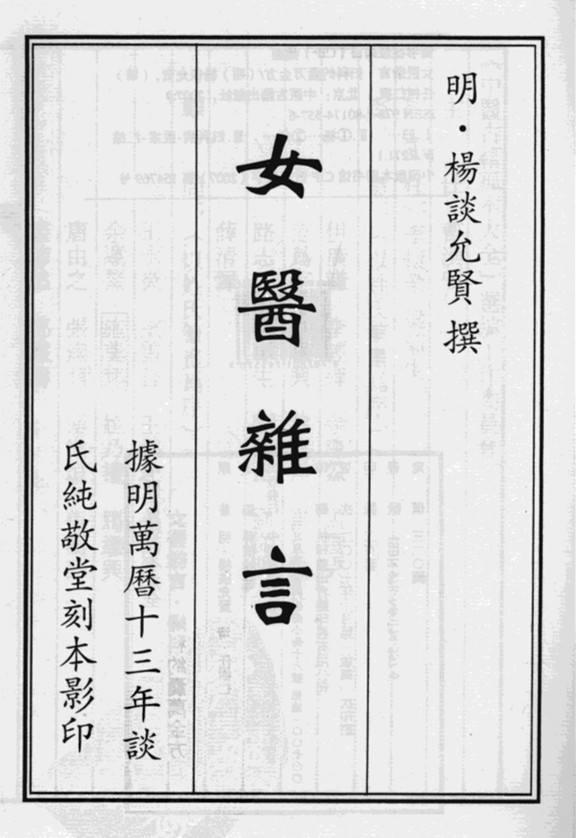 明·楊談允賢 撰
女醫雜言
據明萬曆十三年談
氏純敬堂刻本影印